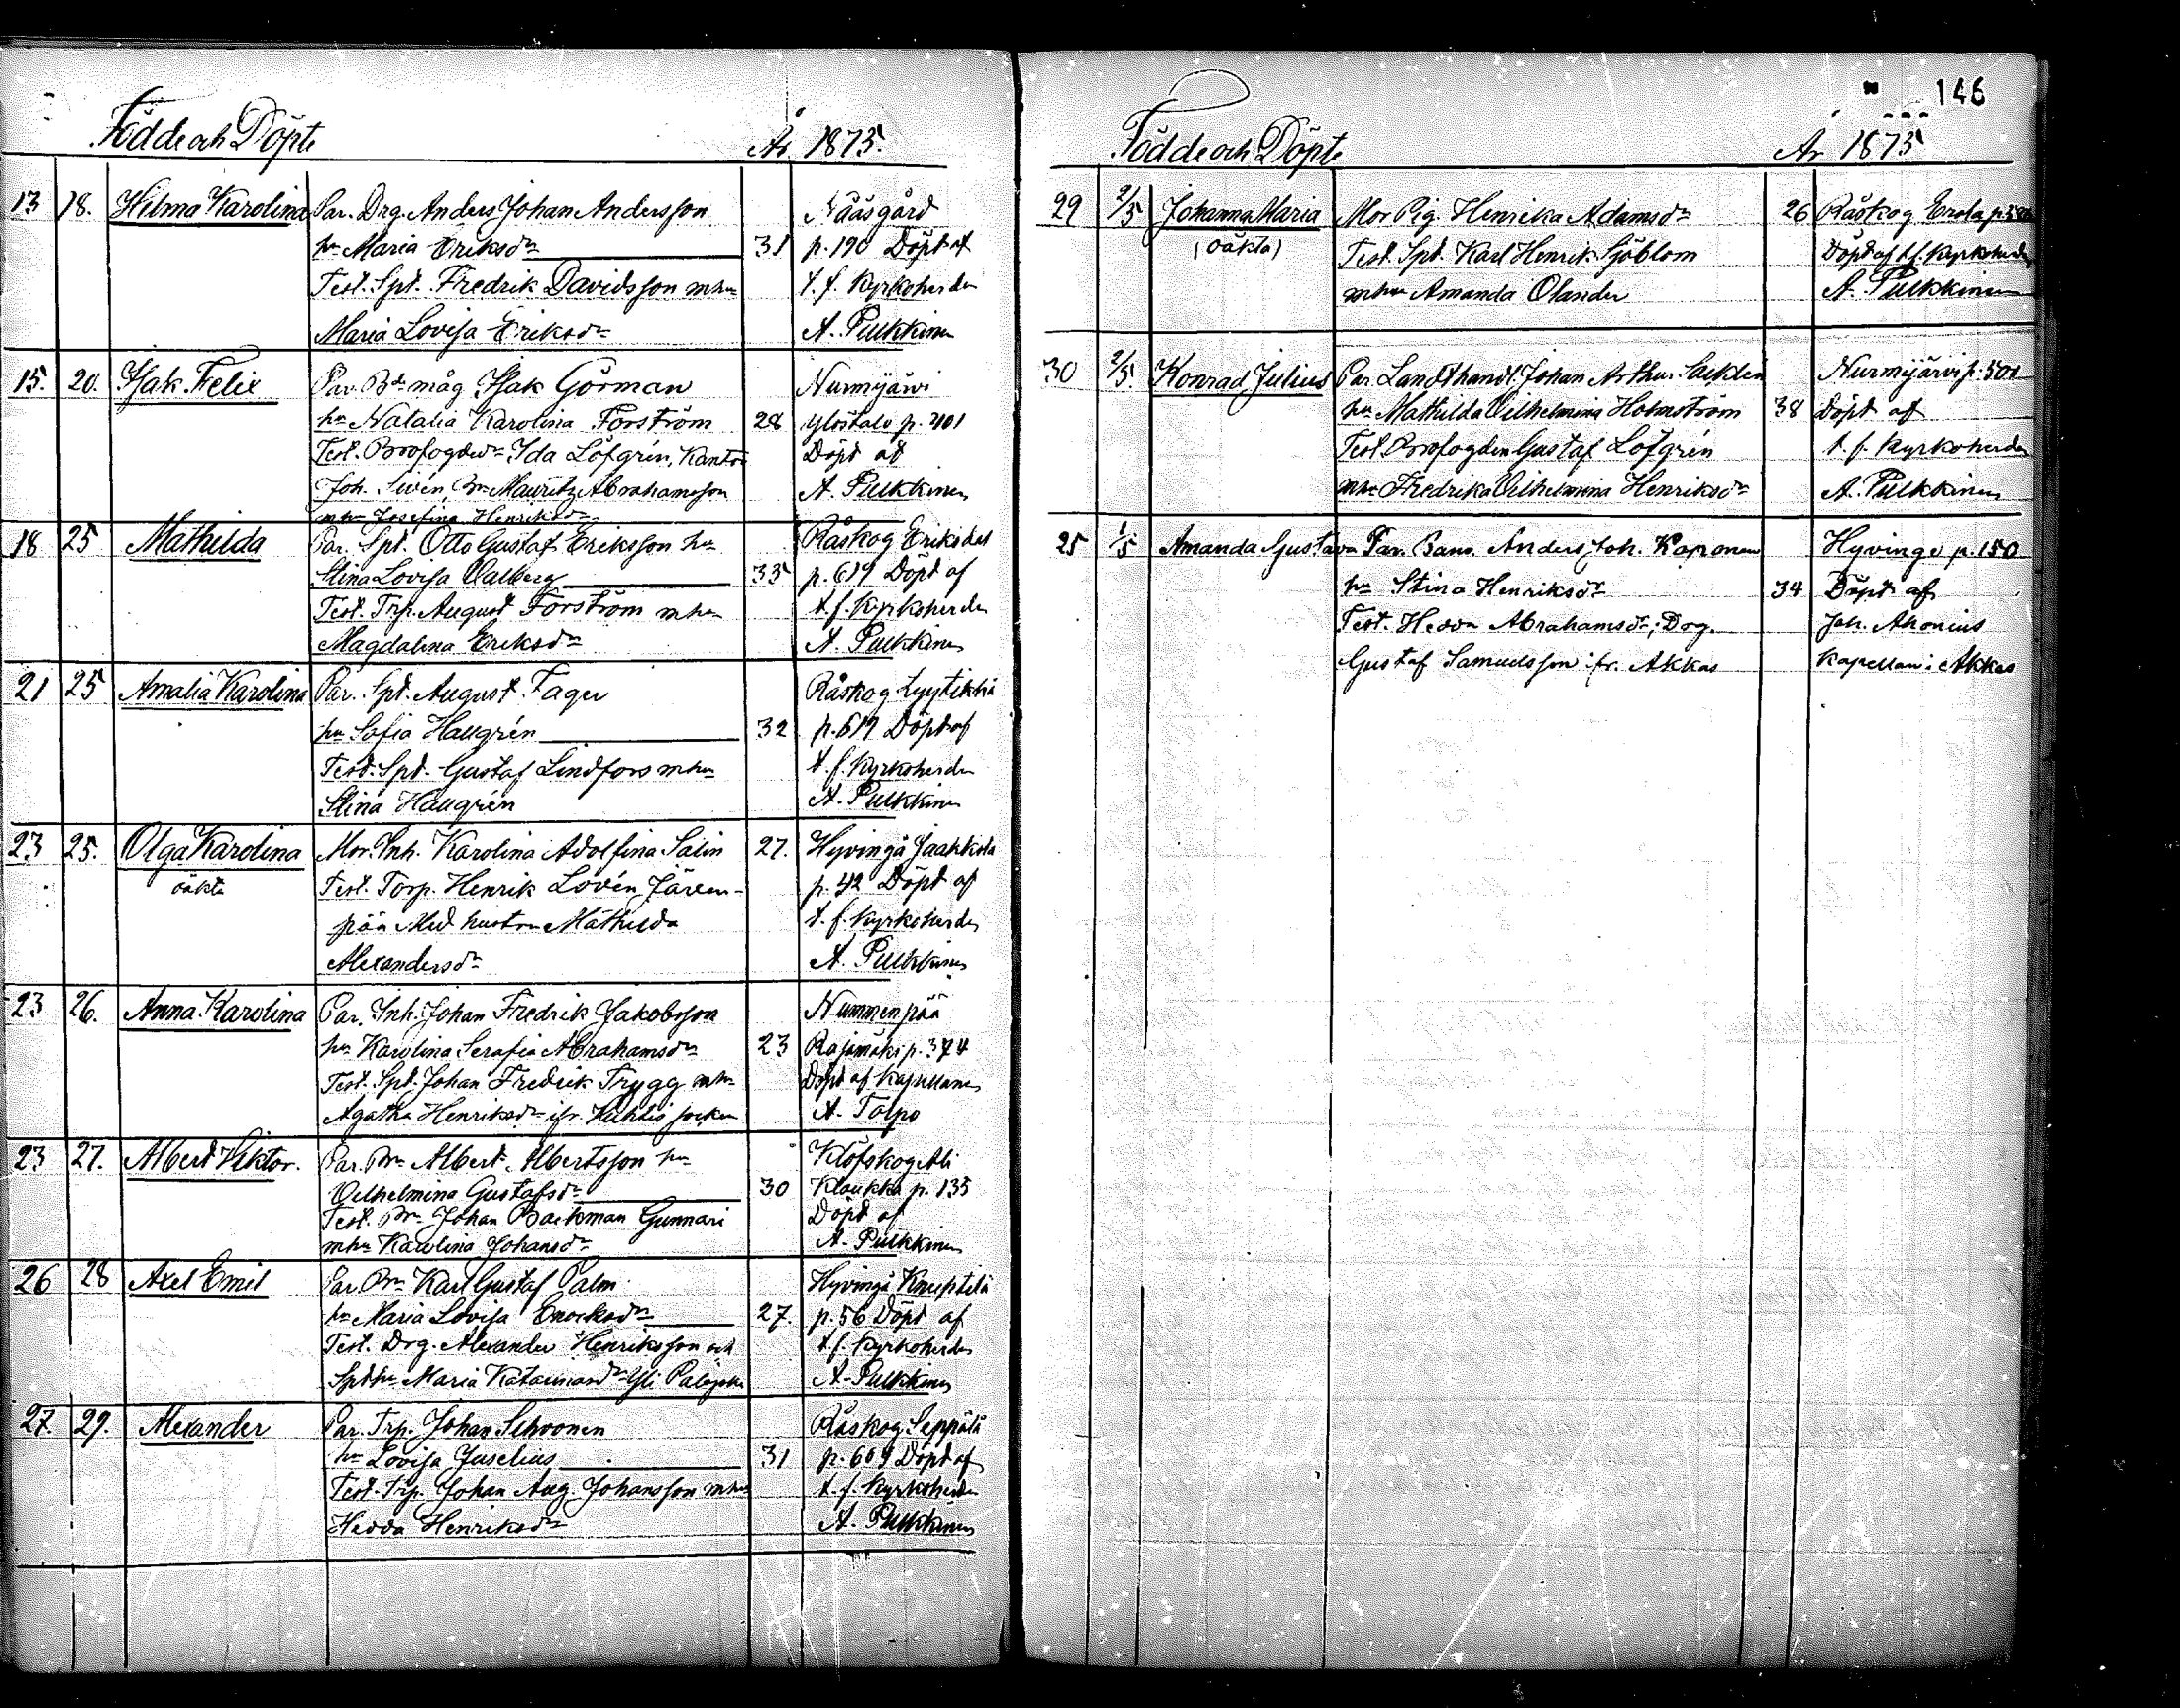 Födde och Döpte År 1875.
13 18. Hilma Karolina Par. Drg. Anders Johan Andersson Nääsgård
hu Maria Eriksdr 31 p. 190 Döpt af
Test. Spt. Fredrik Davidsson mhu t. f. Kyrkoherden
Maria Lovisa Eriksdr A. Pulkkinen
15. 20. Isak Felix Par. Bd. måg Isak Görman Nurmijärvi
hu Natalia Karolina Forström 28 Ylöstalo p. 401
Test. Brofogdew Ida Löfgrén, Kantor Döpt af
Joh. Svén, Bn Mauritz Abrahamsson A. Pulkkinen
mhu Josefina Henriksdr
18 25 Mathilda Par. Spt. Otto Gustaf Eriksson hu Råskog
Stina Lovisa Valberg 33 p. 619 Döpt af
Test. Trp. August Forström mhu t. f. Kyrkoherden
Magdalena Eriksdr A. Pulkkinen
21 25 Amalia Karolina Par. Spt. August Fager Råskog Lyytikkä
hu Sofia Haugrén 32 p. 619 Döpt af
Test. Spt. Gustaf Lindfors mhu t. f. Kyrkoherden
Stina Haugrén A. Pulkkinen
23 25. Olga Karolina Mor. Inh. Karolina Adolfina Salin 27. Hyvingä Jaakkola
oäkta Test. Torp. Henrik Lovén, Järven- p. 42 Döpt af
pää Med hustru Mathilda t. f. Kyrkoherden
Alexandersdr A. Pulkkinen
23 26. Anna Karolina Par. Inh. Johan Fredrik Jakobsson Nummenpää
hu Karolina Serafia Abrahamsdr 23 Rajamäki p. 374
Test. Spt. Johan Fredrik Trygg mhu Döpt af Kapellanen
Agatha Henriksdr ifr. Vichtis socken A. Tolpo
23 27. Albert Viktor. Par. Bn Albert Albertsson hu Klöfskog Ali
Vilhelmina Gustafsdr 30 Klaukka p. 135
Test. Bn Johan Backman Gunnari Döpt af
mhu Karolina Johansdr A. Pulkkinen
26 28 Axel Emil Par. Bn Karl Gustaf Palm Hyvingä Knuptilä
hu Maria Lovisa Enocksdr 27. p. 56 Döpt af
Test. Drg. Alexander Henriksson och t. f. Kyrkoherden
Spt hu Maria Yli A. Pulkkinen
27. 29. Alexander Par. Trp. Johan Råskog Seppälä
hu Lovisa Juselius 31 p. 609 Döpt af
Test. Trp. Johan Aug. Johansson mhu t. f. Kyrkoherden
Hedda Henriksdr A. Pulkkinen
146
Födde och Döpte År 1875
29 2/5 Johanna Maria Mor Pig. Henrika Adamsdr 26 Råskog Erola
(oäkta) Test. Spt. Karl Henrik Sjöblom Döpt af t. f. Kyrkoherden
mhu Amanda Olander A. Pulkkinen
30 2/5. Konrad Julius Par. Landthandl. Johan Arthur Nurmijärvi p. 501
hu Mathilda Vilhelmina Holmström 38 Döpt af
Test. Brofogden Gustaf Löfgrén t. f. Kyrkoherden
mhu Fredrika Vilhelmina Henriksdr A. Pulkkinen
25 1/5 Amanda Gustava Par. Banv. Anders Joh. Kaponen Hyvinge p. 150
hu Stina Henriksdr 34 Döpt af
Test. Hedda Abrahamsdr; Drg. Joh. Ahonius
Gustaf Samuelsson ifr. Akkas Kapellan i Akkas